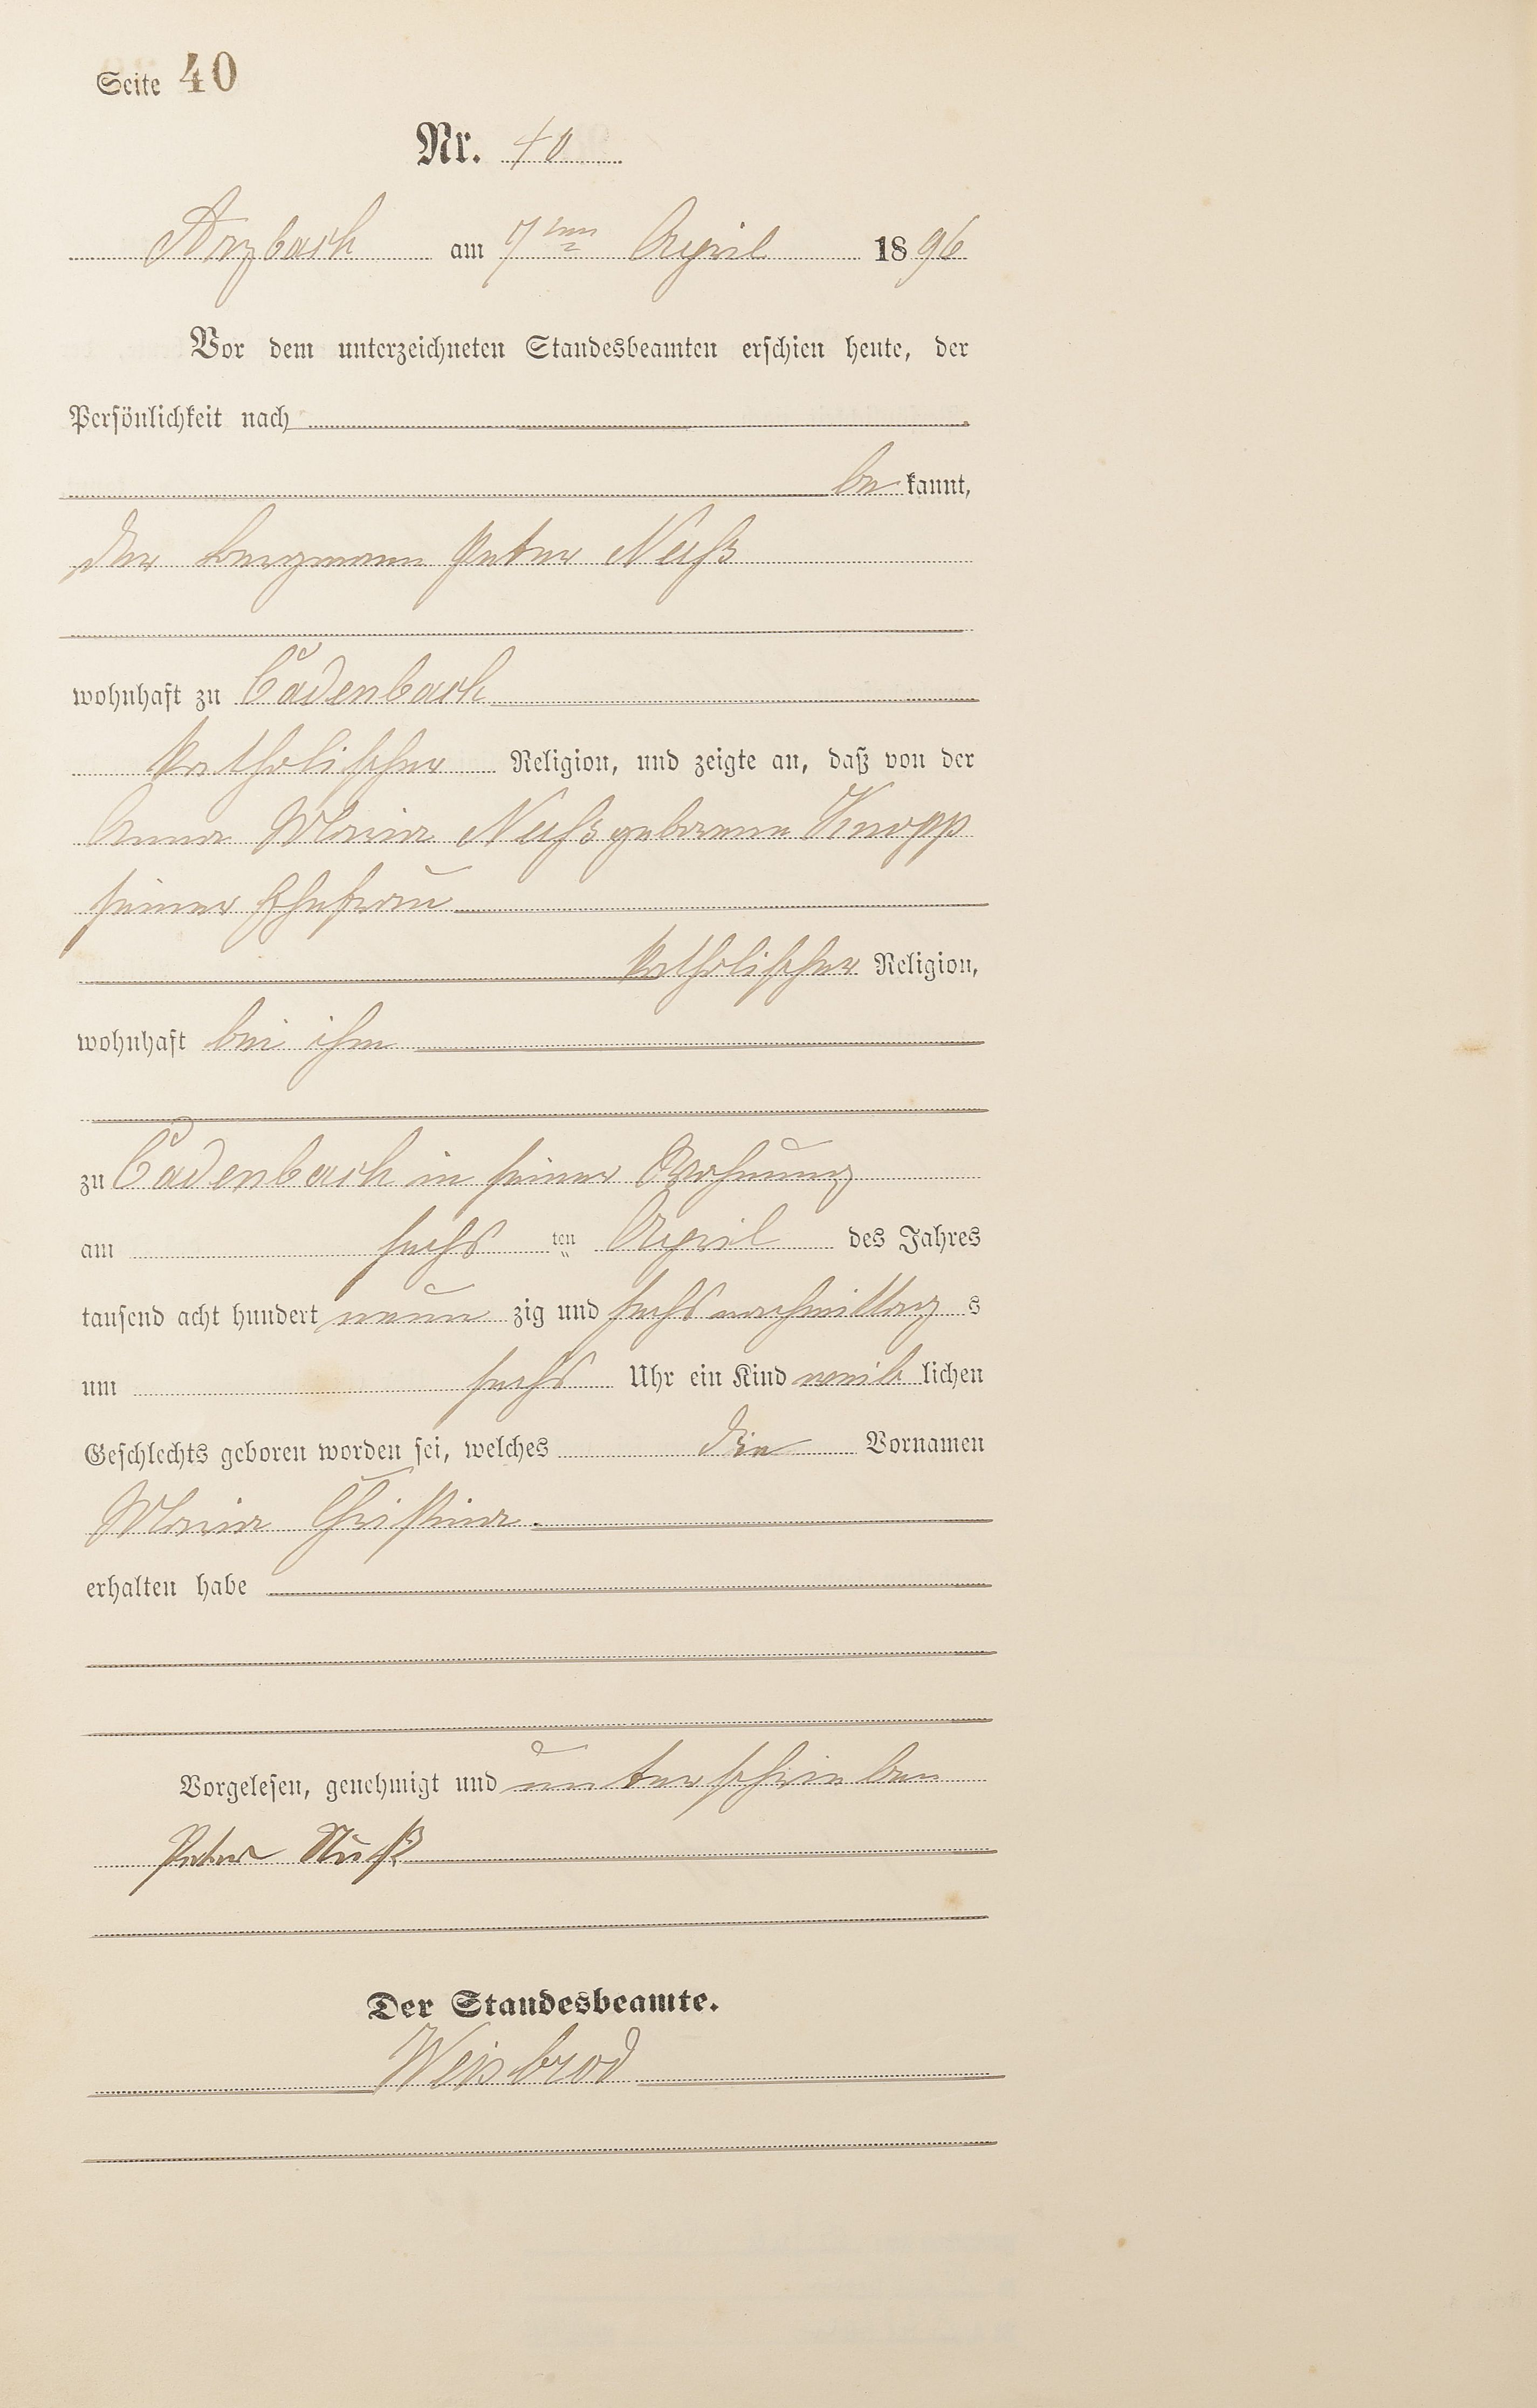 Seite 40
Nr. 40
Arzbach am 7ten April 1896
Vor dem unterzeichneten Standesbeamten erschien heute, der
Persönlichkeit nach
bekannt,
der Bergmann Peter Nuß
wohnhaft zu Cadenbach
katholischer Religion, und zeigte an, daß von der
Anna Maria Nuß geborenen Knopp
seiner Ehefrau
katholischer Religion,
wohnhaft bei ihm
zu Cadenbach in seiner Wohnung
am sechsten April des Jahres
tausend acht hundert neunzig und sechs nachmittags
um sechs Uhr ein Kind weiblichen
Geschlechts geboren worden sei, welches die Vornamen
Maria Christina.
erhalten habe
Vorgelesen, genehmigt und unterschrieben
Peter Nuß
Der Standesbeamte.
Weisbrod